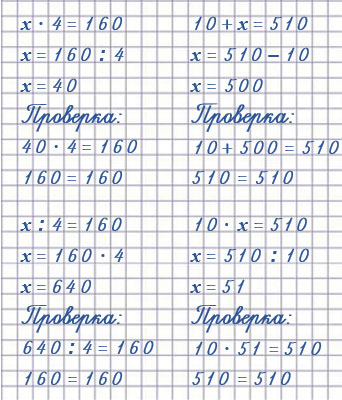 x · 4 = 160
x = 160 : 4
x = 40
Проверка:
40 · 4 = 160
160 = 160
10 + x = 510
x = 510 – 10
x = 500
Проверка:
10 + 500 = 510
510 = 510
x : 4 = 160
x = 160 · 4
x = 640
Проверка:
640 : 4 = 160
160 = 160
10 · x = 510
x = 510 : 10
x = 51
Проверка:
10 · 51 = 510
510 = 510